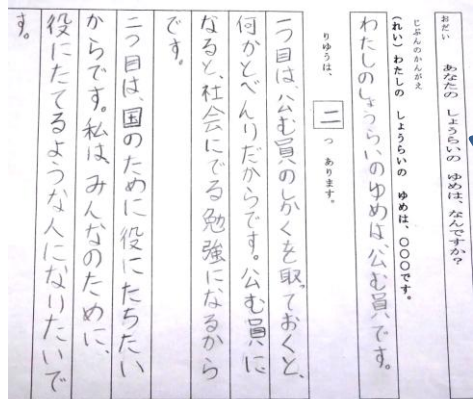 おだい
あなたの しょうらいの ゆめは、なんですか?
じぶんのかんがえ
(れい) わたしの しょうらいの ゆめは、〇〇〇です。
わたしのしょうらいのゆめは、公む員です。
りゆうは、 二 つ あります。
一つ目は、公む員のしかくを取っておくと、
何かとべんりだからです。公む員に
なると、社会にでる勉強になるから
です。
二つ目は、国のために役にたちたい
からです。私は、みんなのために、
役にたてるような人になりたいで
す。